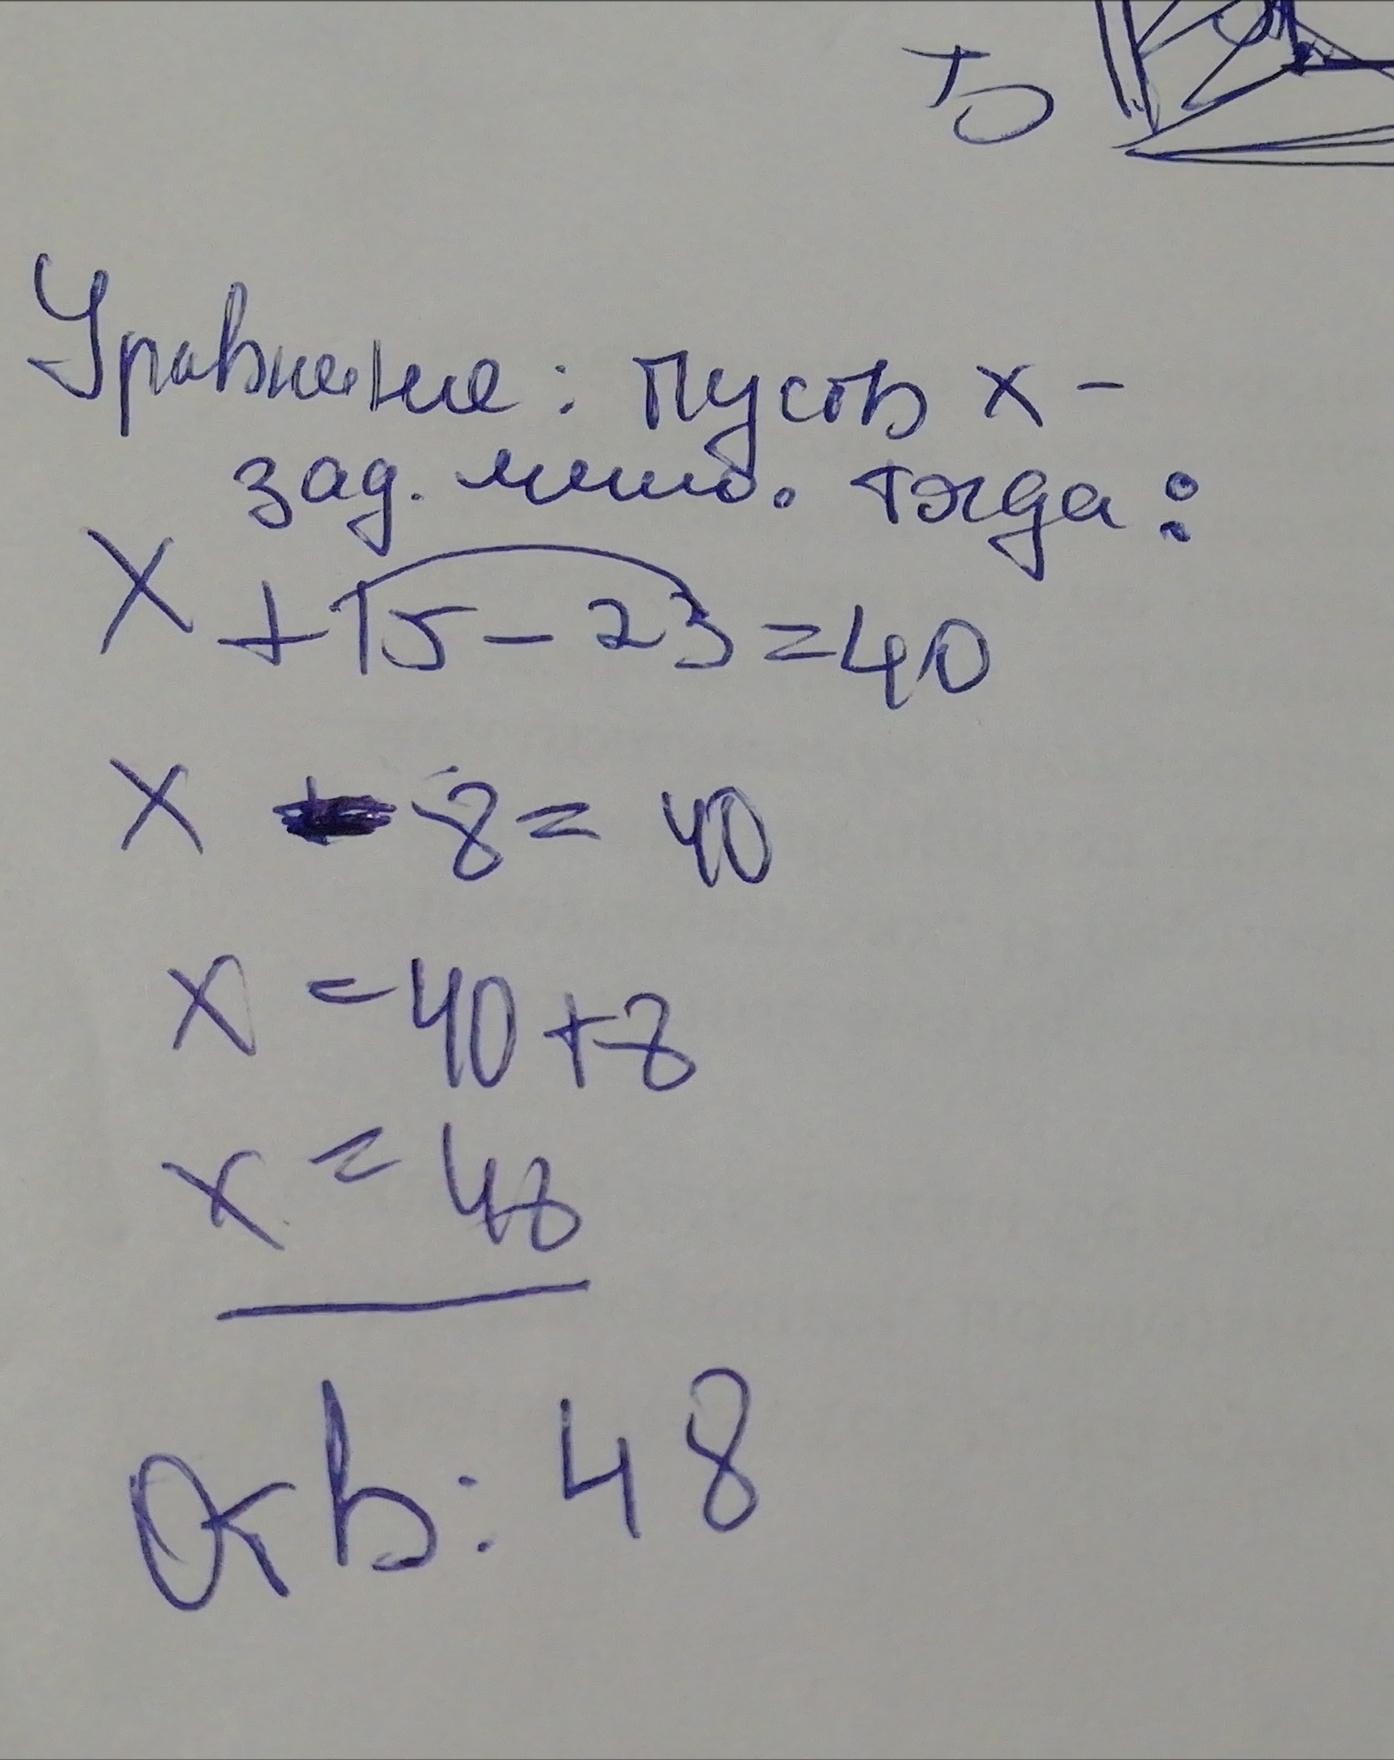 Уравнение: Пусть x –
зад. число. тогда:
x + 15 – 23 = 40
x - 8 = 40
x = 40 + 8
x = 48
Отв: 48